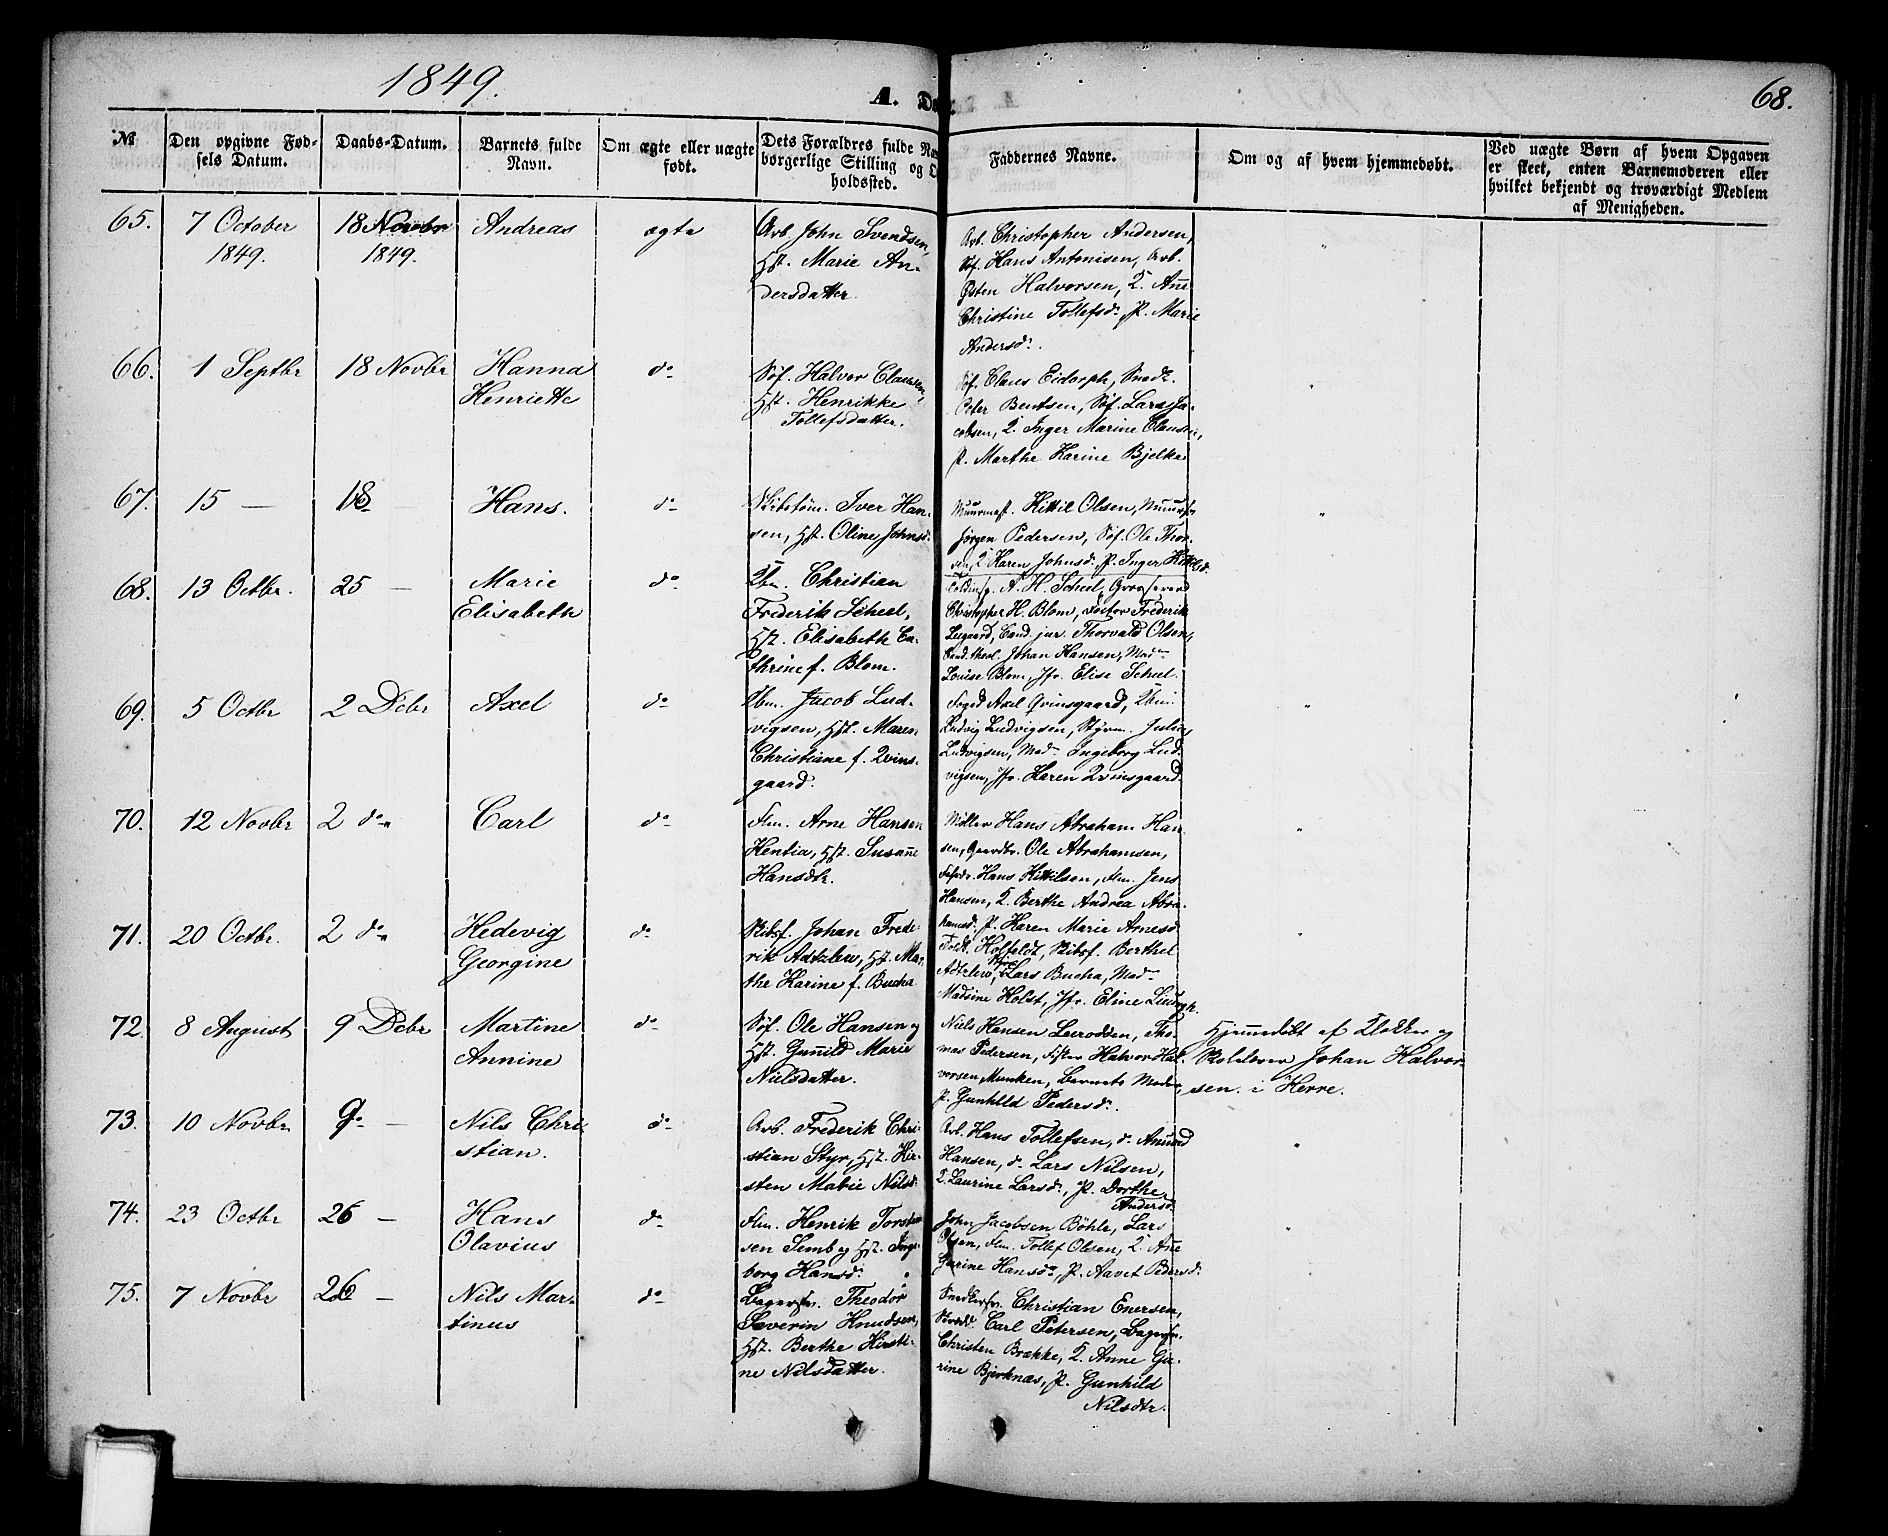 1849.
A. Da
68.
№
Den opgivne Fød-
sels Datum.
Daabs-Datum.
Barnets fulde
Navn.
Om ægte eller uægte
født.
Dets Forældres fulde Na
borgerlige Stilling og O
holdssted.
Faddernes Navne.
Om og af hvem hjemmedøbt.
Ved uægte Børn af hvem Opgaven
er skeet, enten Barnemoderen eller
hvilket bekjendt og troværdigt Medlem
af Menigheden.
65. 7 October 18 Novbr Andreas ægte
1849. 1849.
Arb. John Svendsen,
Hst. Marie An-
dersdatter.
Arb. Christopher Andersen,
Søf. Hans Antonisen, Arb.
Østen Halvorsen, Q. Añe
Christine Tollefsd., P. Marie
Andersd.
66. 1 Septbr 18 Novbr Hanna do
Henriette
Søf. Halvor Clausen,
Hst. Henrikke
Tollefsdatter.
Søf. Claus Eidorph, Snedk.
Peter Bentsen, Søf. Lars Ja-
cobsen, Q. Inger Marine Clausen,
P. Marthe Karine Bjelke
67. 15 — 18 — Hans. do
Skibstøm. Iver Han-
sen, Hst. Oline Johnsd.
Muurmest. Kittil Olsen, Muurs.
Jørgen Pedersen, Søf. Ole Thor-
sen, Q Karen Johnsd., P. Inger Kittilsd.
68. 13 Octbr. 25 — Marie do
Elisabeth
Christian
Frederik Scheel,
Hst. Elisabeth Ca-
thrine f. Blom.
A. H. Scheel, Grosserer
Christopher H. Blom, Doctor Frederik
Lugaard, Cand. jur. Thorvald Olsen,
Cand. theol. Johan Hansen, Mad.
Louise Blom, Jfr. Elise Scheel.
69. 5 Octbr 2 Dcbr Axel do
Jacob Lud-
vigsen, Hst. Maren
Christiane f. Qvins-
gaard.
Foged Axel Qvinsgaard,
Ludvig Ludvigsen, Styrm. Julius
Ludvigsen, Mad. Ingeborg Lud-
vigsen, Jfr. Karen Qvinsgaard.
70. 12 Novbr 2 do Carl do
Flm. Arne Hansen
Kentia, Hst. Susañe
Hansdtr.
Møller Hans Abraham Han-
sen, Gaardbr. Ole Abrahamsen,
Hans Kittilsen, Flm. Jens
Hansen, Q. Berthe Andrea Abra-
hamsd. P. Karen Marie Arnesd.
71. 20 Octbr. 2 do Hedevig do
Georgine
Skibsf. Johan Frede-
rik Adtzlew, Hst. Mar-
the Karine f. Bucha
Toldt. Holfeldt, Skibsf. Berthel
Adtzlew, Lars Bucha, Mad.
Madsine Holst, Jfr. Eline
72. 8 August 9 Dcbr Martine do
Annine
Søf. Ole Hansen og
Hst. Guñild Marie
Nielsdatter.
Niels Hansen Leerodden, Tho-
mas Pedersen, Fisker Halvor Hal-
vorsen Munken, Barnets Moder,
P. Gunhild Pedersd.
Hjemmedøbt af Klokker og
Skolelærer Johan Halvor-
sen i Herre.
73. 10 Novbr 9 — Nils Chri- do
stian.
Arb. Frederik Chri-
stian Styr, Hst. Kir-
sten Marie Nilsd.
Arb. Hans Tollefsen, do Amund
Hansen, do Lars Nilsen,
Q. Laurine Larsd., P. Dorthe
Andersd.
74. 23 Octbr 26 — Hans do
Olavius
Flm. Henrik Torsten-
sen Semb og Hst. Inge-
borg Hansd.
John Jacobsen Böhle, Lars
Olsen, Flm. Tollef Olsen, Q. Añe
Gurine Hansd., P. Aavet Pedersd.
75. 7 Novbr 26 — Nils Mar- do
tinus
Bagersv. Theodor
Severin Knudsen,
Hst. Berthe Kirsti-
ne Nilsdatter.
Snedkersv. Christian Enersen,
Carl Petersen, Bagersv.
Christen Brække, Q. Anne Gu-
rine Bjerknæs, P. Gunhild
Nilsdtr.